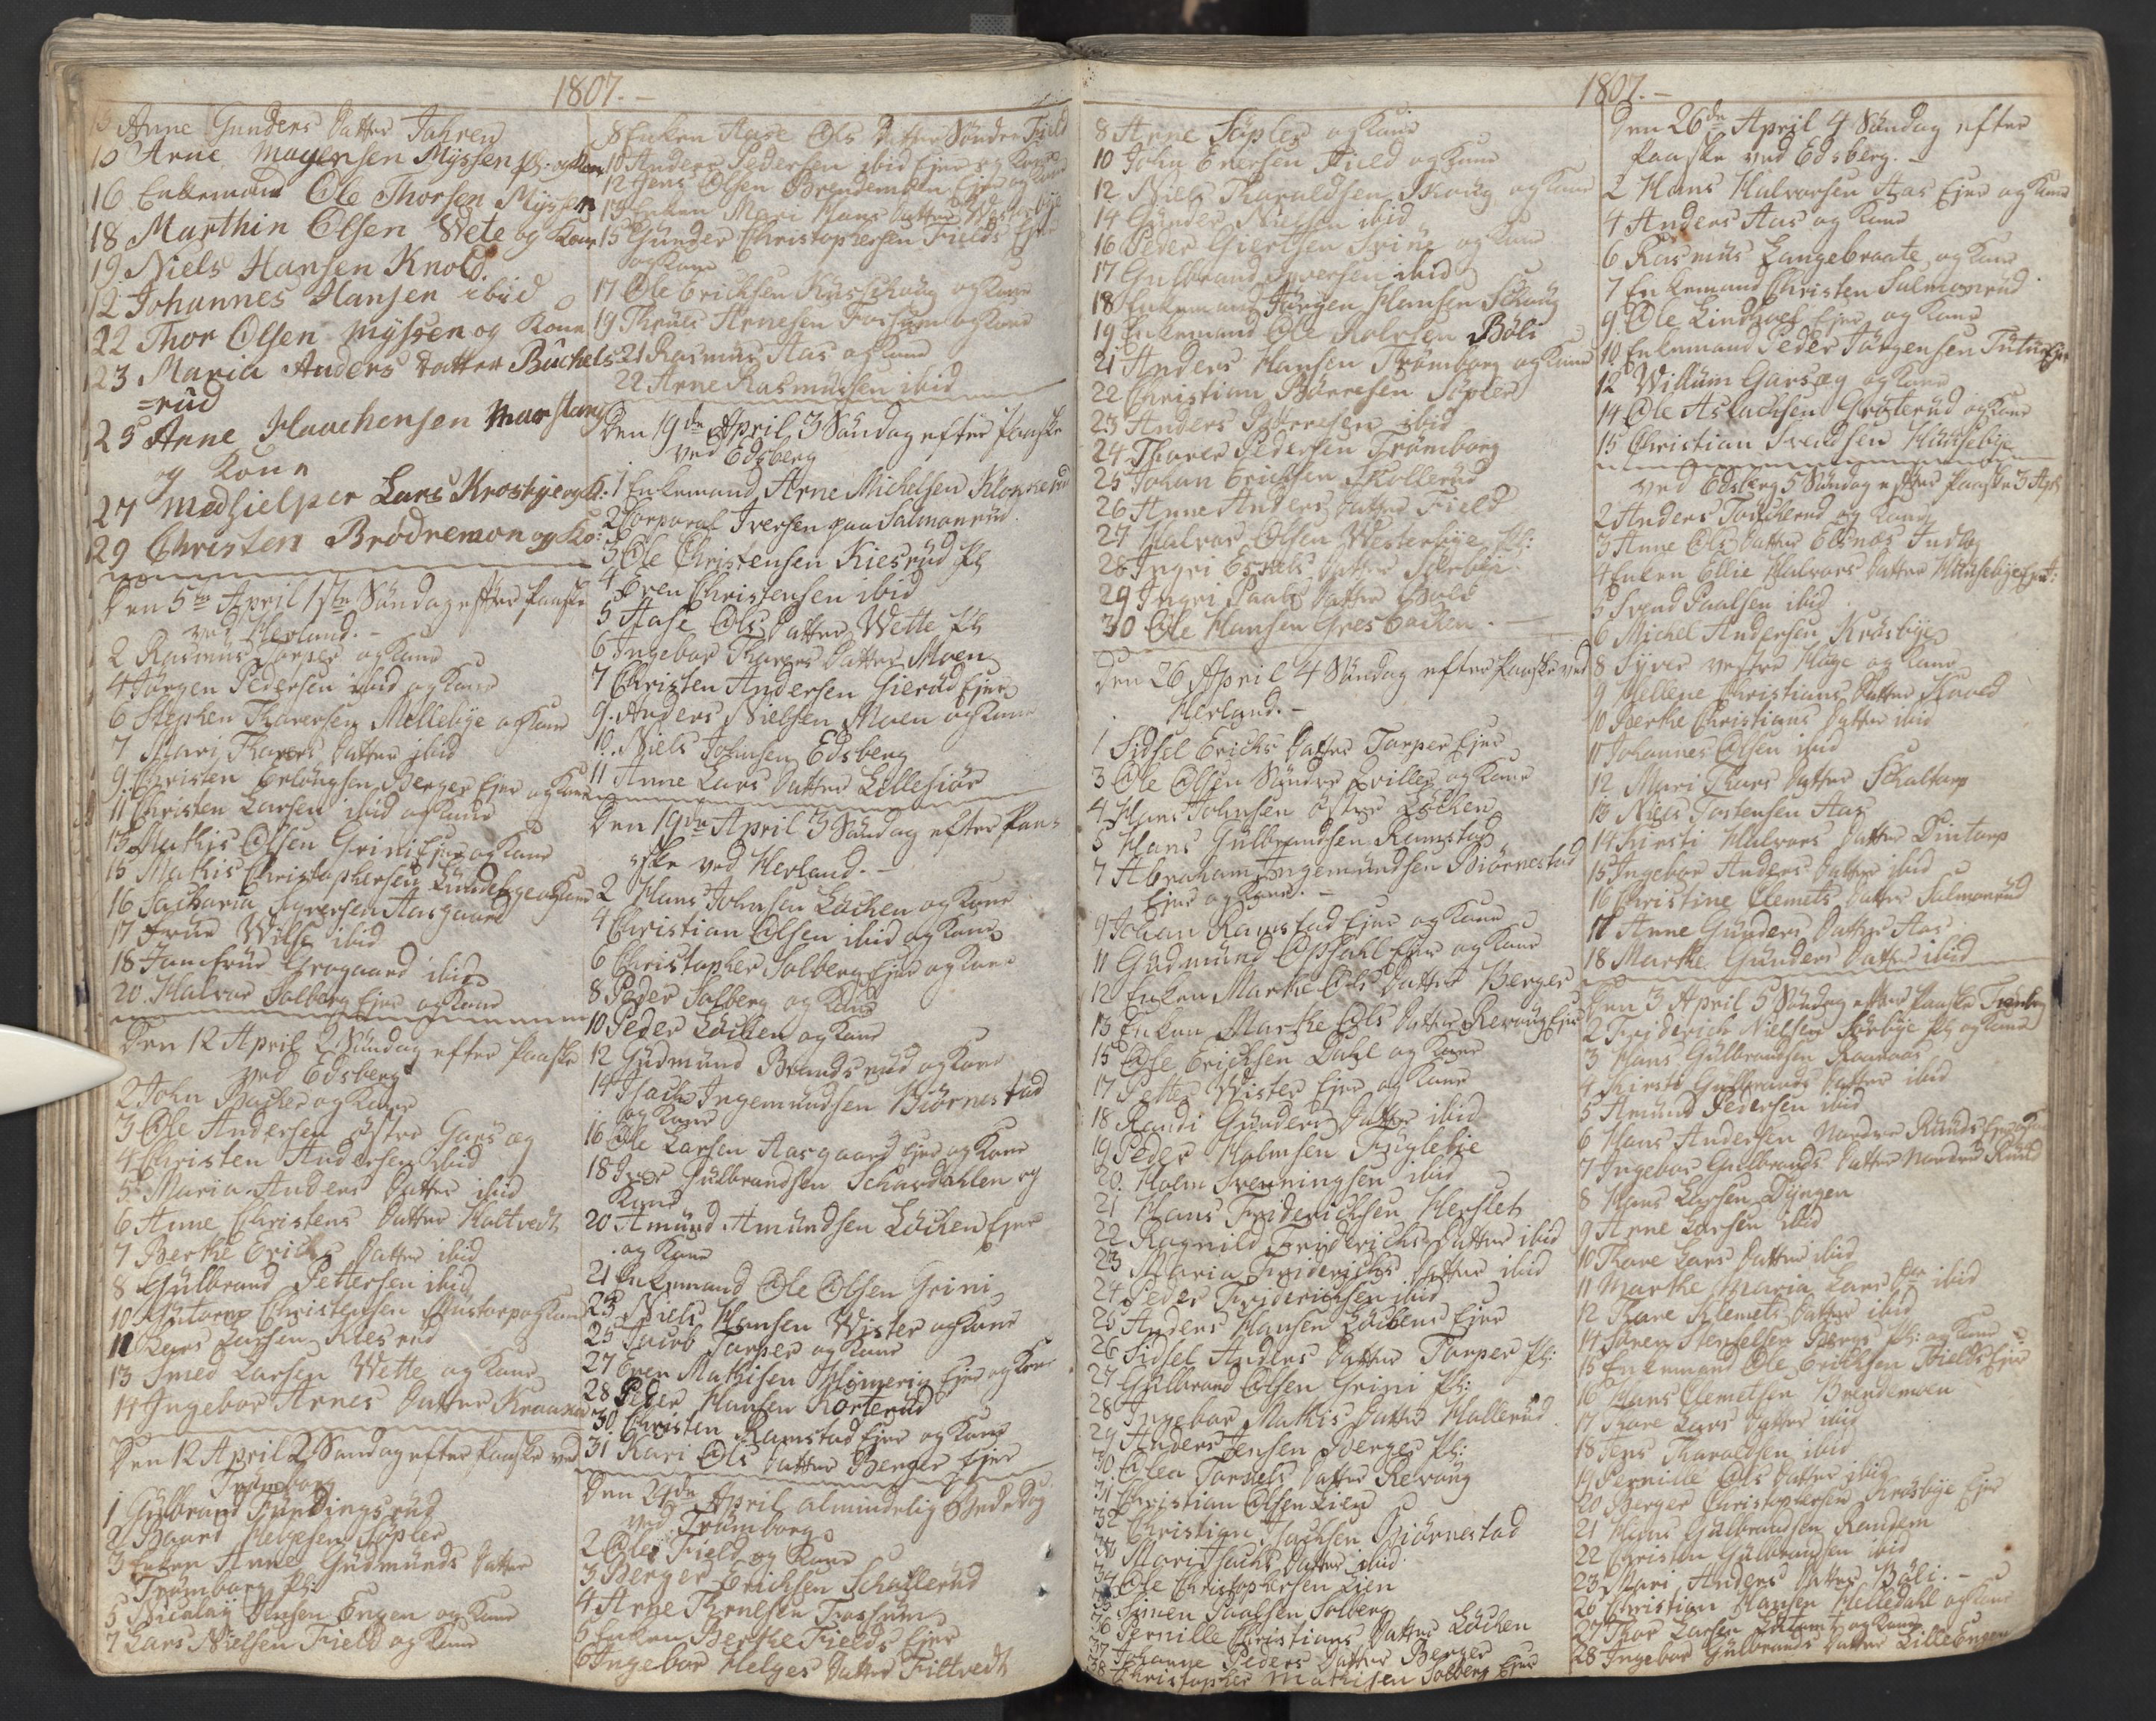 1807.-
13 Anne Gunders Datter Jahren
15 Arne Mogensen Myssen pl: og Kone
16 Enkemand Ole Thorsen Myssen
18 Marthin Olsen Wete og Kone
19 Niels Hansen Knold.
12 Johannes Hansen ibid
22 Thor Olsen Myssen og Kone
23 Maria Anders Datter Buchels
=rud
25 Anne Haachensen Marstang
og Kone
27 Medhielper Lars Krosbye og K:
29 Christen Brødremon og Ko:
Den 5te April 1ste Søndag efter Paaske
ved Herland.-
2 Rasmus Torper og Kone
4 Jørgen Pedersen ibid og Kone
6 Stephen Thoresen Mellebye og Kone
7 Mari Thores Datter ibid
9. Christen Erlongsen Berger Ejer og Kone
11 Christen Larsen ibid og Kone
13 Mathis Olsen Grini Ejer og Kone
15 Mathis Christophersen Lundebye og Kone
16 Sacharia Syversen Aasgaard
17 Frue Wilse ibid
18 Jomfrue Grogaard ibid
20. Halvor Solberg Ejer og Kone
Den 12 April 2 Søndag efter Paaske
ved Edsberg
2 John Backer og Kone
3 Ole Andersen østre Garseg
4 Christen Andersen ibid
5 Maria Anders Datter ibid
6 Anne Christens Datter Haltvedt
7 Berthe Erichs Datter ibid
8 Gulbrand Pettersen ibid
10 Guttorm Christensen Mustorp og Kone
11 Lars Larsen Kiesrud
13 Smed Larsen Wette og Kone
14 Ingebor Arnes Datter Kraarud
Den 12 April 2 Søndag efter Paaske ved
Trømborg
1 Gulbrand Fundingsrud
2 Baard Helgesen Søpler
3 Enken Anne Gudmunds Datter
Trømborg pl:
5 Nicolay Jensen Engen og Kone
7 Lars Nielsen Field og Kone
8 Enken Aase Ols Datter Søndre Field
10 Anders Pedersen ibid Ejer og Kone
12 Jens Olsen Brendemoen Ejer og Kone
13 Enken Mari Hans Datter Westerbye
15 Gunder Christophersen Fields Ejer
og Kone
17 Ole Erichsen Kusschoug og Kone
19 Thrues Arnesen Fossum og Kone
21 Rasmus Aas og Kone
22 Arne Rasmussen ibid
Den 19de April 3 Søndag efter Paaske
ved Edsberg
1 Enkemand Arne Michelsen Klokkerud
2 Corporal Iversen paa Salmonrud
3 Ole Christensen Kiesrud pl
4 Even Christensen ibid
5 Aase Ols Datter Wette pl
6 Ingebor Thores Datter Moen
7 Christen Andersen Gierud Ejer
9. Anders Nielsen Moen og Kone
10. Niels Johnsen Edsberg
11 Anne Lars Datter Lillesiør
Den 19de April 3 Søndag efter Paa=
ske ved Herland.-
2 Hans Johnsen Løchen og Kone
4 Christian Olsen ibid og Kone
6 Christopher Solberg Ejer og Kone
8. Peder Solberg og Kone
10 Peder Løchen og Kone
12 Gudmund Brandsrud og Kone
14 Isach Ingemundsen Biørnestad
og Kone
16 Ole Larsen Aasgaard Ejer og Kone
18 Iver Gulbrandsen Schardahlen og
Kone
20 Amund Amundsen Løchen Ejer
og Kone
21 Enkemand Ole Olsen Grini
23 Niels Hansen Wister og Kone
25 Jacob Torper og Kone
27 Even Mathisen Slømering Ejer og Kone
28 Peder Hansen Korterud
30 Christen Ramstad Ejer og Kone
31 Kari Ols Datter Berger Ejer
Den 24de April almindelig Bededag
ved Trømborg
2 Ole Field og Kone
3 Berger Erichsen Schullerud
4 Arne Thruesen Fossum
5 Enken Berthe Fields Ejer
6 Ingebor Helges Datter Filtvedt
1807.-
8 Arne Søpler og Kone
10 John Evensen Field og Kone
12 Niels Tharaldsen Skoug og Kone
14 Gunder Nielsen ibid
16 Peder Giertsen Grini og Kone
17 Gulbrand Iversen ibid
18 Enkemand Jørgen Hansen Schoug
19. Enkemand Ole Rolvsen Bøli
21 Anders Hansen Trømborg og Kone
22 Christian Børresen Søpler
23 Anders Børresen ibid
24 Thorer Pedersen Trømborg
25 Johan Erichsen Skollerud
26 Anne Anders Datter Field
27 Halvor Olsen Westerbye pl:
28 Ingri Eskels Datter Schebli
29 Ingri Paals Datter Hvold
30 Ole Hansen Gresbacken.
Den 26 April 4 Søndag efter Paaske ved
Herland.-
1 Sidsel Erichs Datter Torper Ejer
3 Ole Olsen Søndre Qviller og Kone
4 Hans Johnsen østre Løchen
5 Hans Gulbrandsen Ramstad
7 Abraham Ingemundsen Biørnestad
Ejer og Kone.-
9 Johan Ramstad Ejer og Kone
11 Gudmund Opsahl Ejer og Kone
12 Enken Marthe Ols Datter Berger
13 Enken Marthe Ols Datter Revoug Ejer
15 Ole Erichsen Dahl og Kone
17 Petter Wister Ejer og Kone
18 Randi Gunders Datter ibid
19 Peder Holmsen Fuglelie
20. Holm Svenningsen ibid
21 Hans Friderichsen Herslet
22 Ragnild Friderichs Datter ibid
23 Maria Friderichs Datter ibid
24 Peder Friderichsen ibid
25 Anders Hansen Løchens Ejer
26 Sidsel Anders Datter Torper pl:
27 Gulbrand Olsen Grini pl:
28 Ingebor Mathis Datter Hollerud
29 Anders Jensen Berger pl:
30. Olea Tormels Datter Revoug
31 Christian Olsen Lien
32 Christian Isachsen Biørnestad
33 Mari Isachs Datter ibid
34 Ole Christophersen Lien
35 Simen Paalsen Solberg
36 Pernille Christians Datter Løchen
37 Johanne Peders Datter Berger
38 Christopher Mathisen Solberg Ejer
Den 26de April 4 Søndag efter
Paaske ved Edsberg.-
2 Hans Halvorsen Aas Ejer og Kone
4 Anders Aas og Kone
6 Rasmus Langebraate og Kone
7 Enkemand Christen Salmonrud
9 Ole Lindhoel Ejer og Kone
10 Enkemand Peder Jørgensen Tutur Ejer
12 Willum Garseg og Kone
14 Ole Aslachsen Grøterud og Kone
15 Christian Svendsen Huusebye
ved Edsberg 5 Søndag efter Paaske 3 Apl
2 Anders Toschrud og Kone
3 Anne Ols Datter Edsnæs Indlag
4 Enken Ellie Halvors Datter Huusebye Ejer:
5 Svend Paalsen ibid
6 Michel Andersen Krosbye
8 Syver vestre Hage og Kone
9 Hellene Christians Datter Knold
10 Berthe Christians Datter ibid
11 Johannes Olsen ibid
12 Mari Thors Datter Schaltorp
13 Niels Tostensen Aas
14 Kirsti Halvors Datter Dintorp
15 Ingebor Anders Datter ibid
16 Christine Clemets Datter Salmonrud
17 Anne Gunders Datter Aas
18 Marthe Gunders Datter ibid
Den 3 April 5 Søndag efter Paaske Trømborg
2 Friderich Nielsen Sørbye pl og Kone
3 Hans Gulbrandsen Raanaas
4 Kirsti Gulbrands Datter ibid
5 Amund Pedersen ibid
6 Hans Andersen Nordre Ruuds Ejer og Kone
7 Ingebor Gulbrands Datter Nordre Ruud
8 Hans Larsen Dyngen
9 Arne Larsen ibid
10 Thore Lars Datter ibid
11 Marthe Maria Lars Dtr ibid
12 Thore Klemets Datter ibid
14 Søren Stenelsen Bergs pl: og Kone
15 Enkemand Ole Erichsen Fields Ejer
16 Hans Clemetsen Brendemoen
17 Thore Lars Datter ibid
18 Jens Tharaldsen ibid
19 Pernille Ols Datter ibid
20 Berger Christophersen Krosbye Ejer
21 Hans Gulbrandsen Randem
22 Christen Gulbrandsen ibid
23 Mari Anders Datter Bøli.-
26 Christian Hansen Helledahl og Kone
27 Thor Larsen og Kone
28 Ingebor Gulbrands Datter Lille Engen